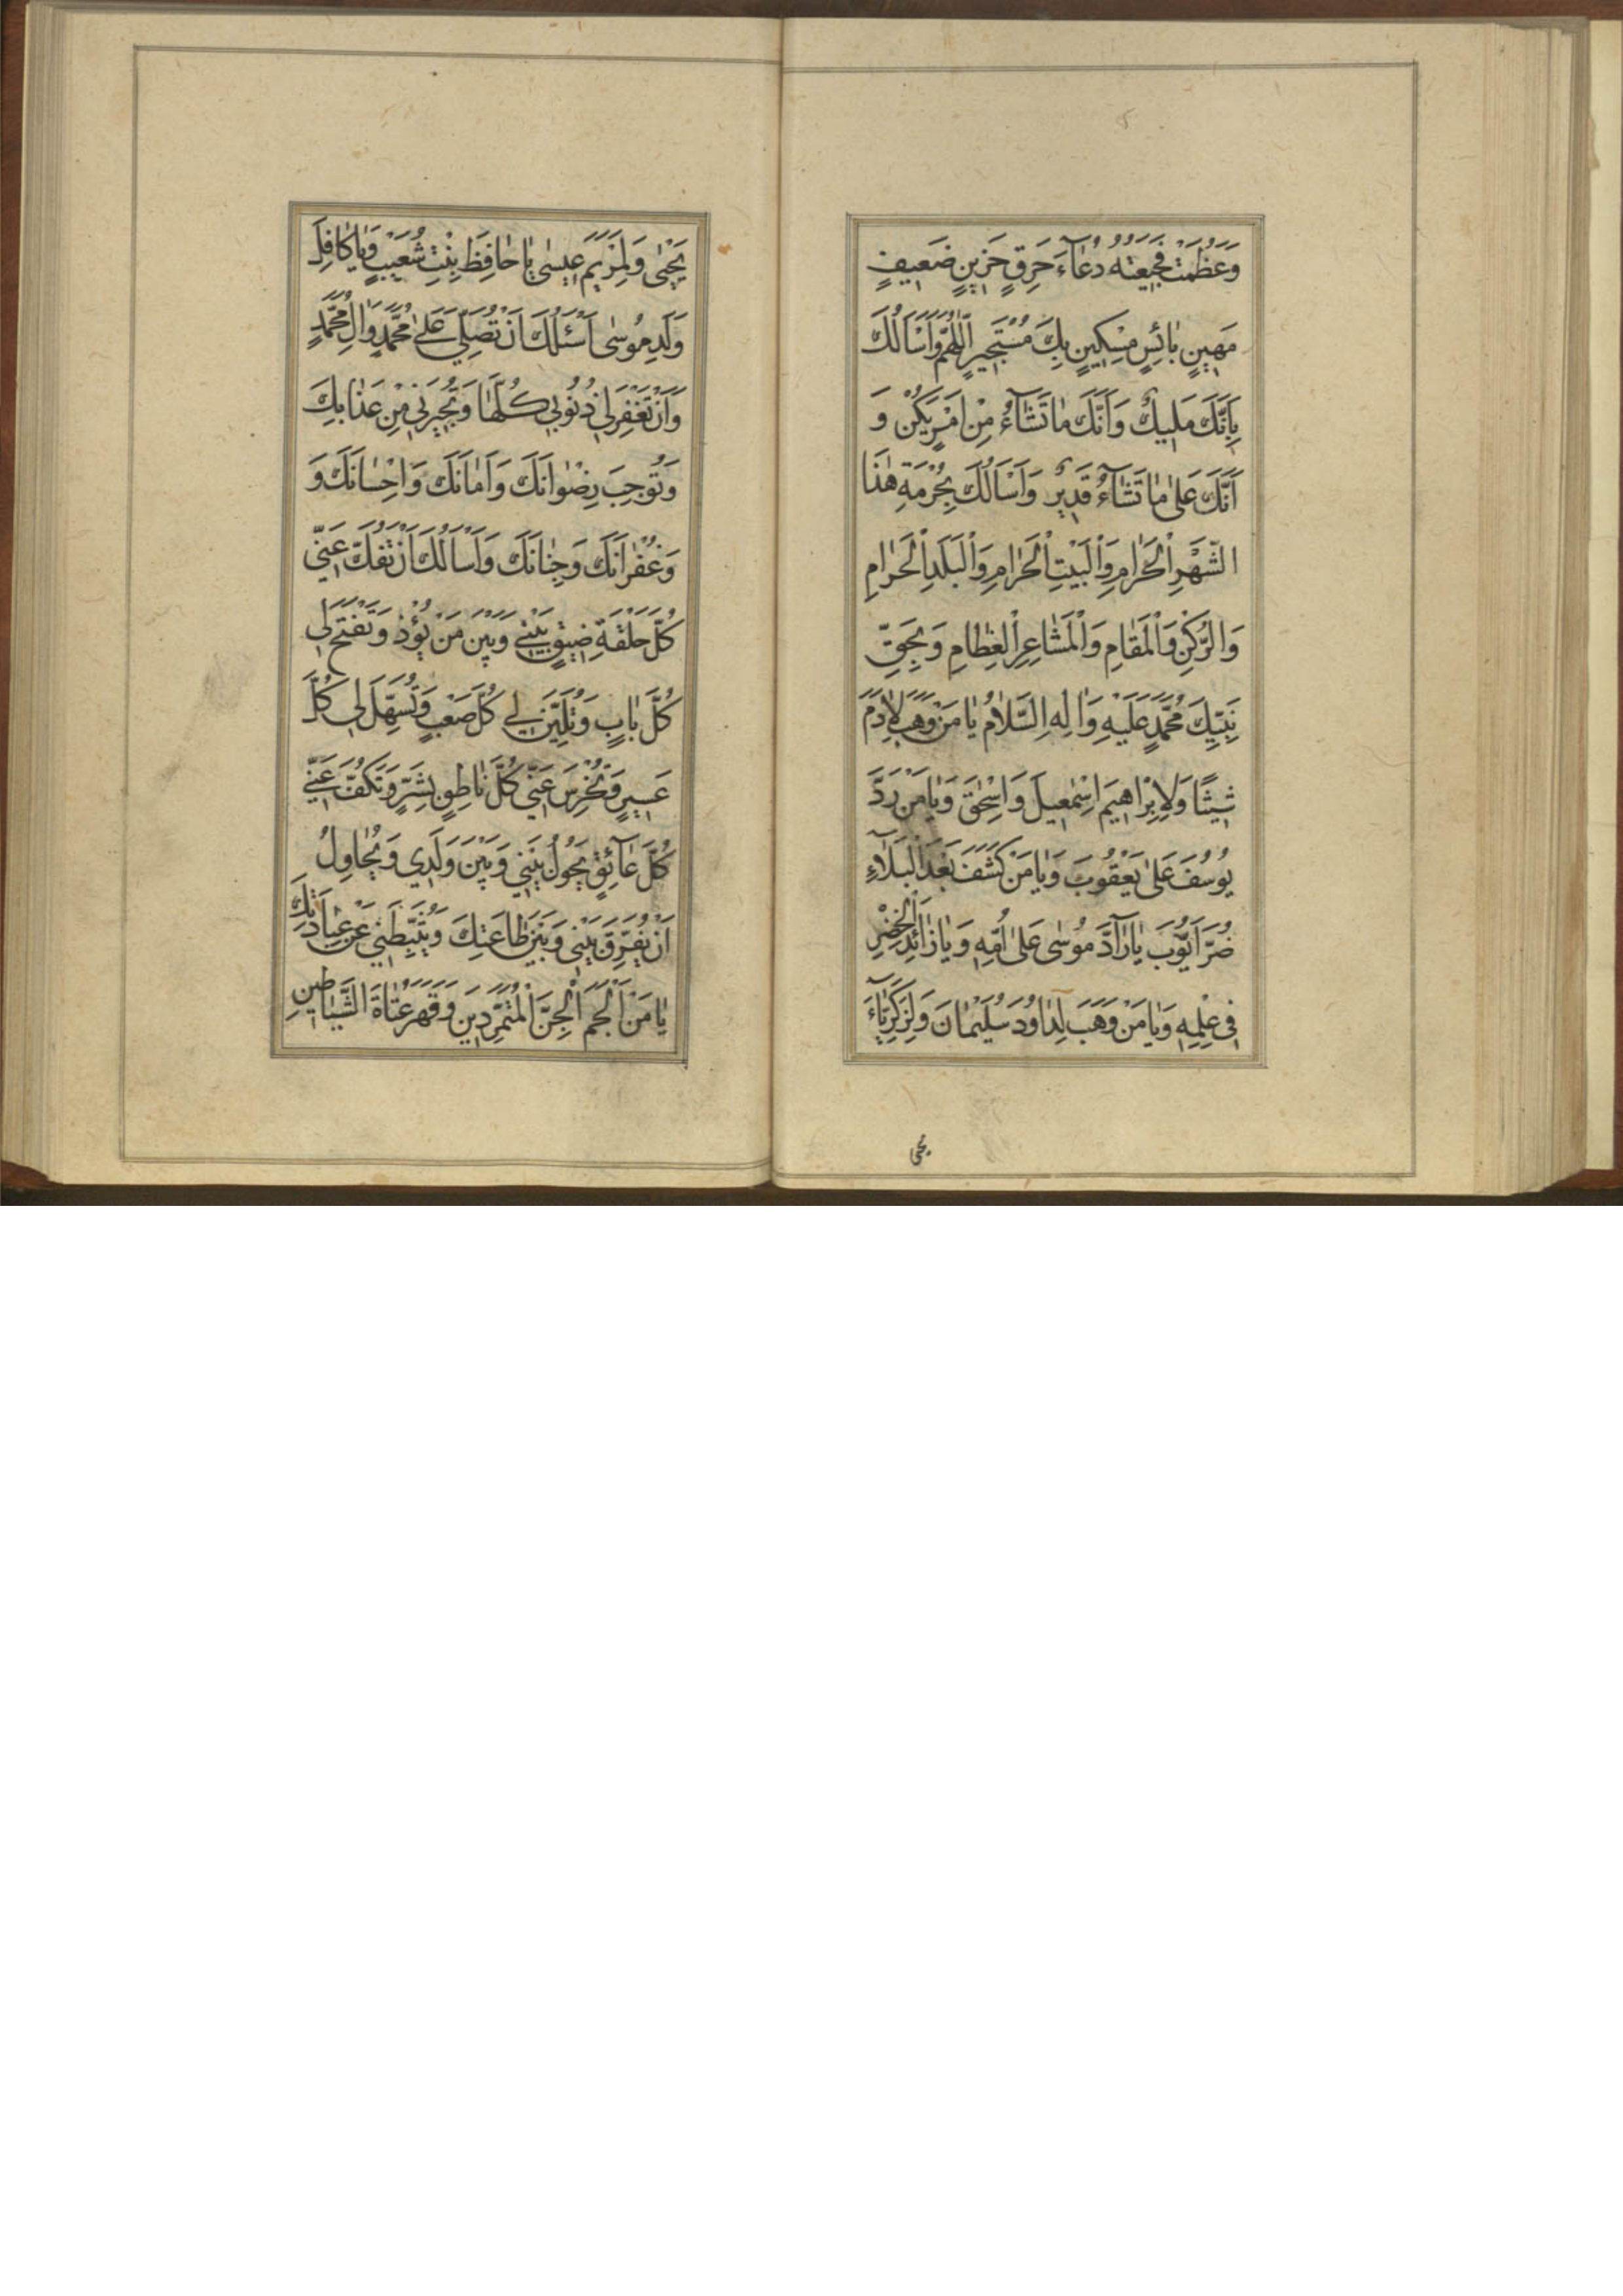 وَعَظُمَتْ فَجيعَتُهُ دُعآءَ حَرِقٍ حَزينٍ ضَعيفٍ
مَهينٍ بٰائِسٍ مِسْكينٍ بِكَ مُسْتَجيرٍ اَللّٰهُمَّ وَاَسْاَلُكَ
بِاَنَّكَ مَليكٌ وَاَنَّكَ مٰا تَشٰآءُ مِنْ اَمْرٍ يَكُنْ وَ
اَنَّكَ عَلىٰ مٰا تَشٰآءُ قَديرٌ وَاَسْاَلُكَ بِحُرْمَةِ هٰذَا
الشَّهْرِ الْحَرٰامِ وَالْبَيْتِ الْحَرٰامِ وَالْبَلَدِ الْحَرٰامِ
وَالرُّكْنِ وَالْمَقٰامِ وَالْمَشٰاعِرِ الْعِظٰامِ وَبِحَقِّ
نَبِيِّكَ مُحَمَّدٍ عَلَيْهِ وَاٰلِهِ السَّلٰامُ يٰا مَنْ وَهَبَ لِاٰدَمَ
شيثًا وَلِاِبْرٰاهيمَ اِسْمٰعيلَ وَاِسْحٰقَ وَيٰا مَنْ رَدَّ
يُوسُفَ عَلىٰ يَعْقُوبَ وَيٰا مَنْ كَشَفَ بَعْدَ الْبَلَآءِ
ضُرَّ اَيُّوبَ يٰا رٰآدَّ مُوسىٰ عَلىٰ اُمِّهِ وَيٰا زٰائِدَ الْخِضْرِ
فى عِلْمِهِ وَيٰا مَنْ وَهَبَ لِدٰاوُدَ سُلَيْمٰانَ وَلِزَكَرِيّٰآءَ
يحيى
يَحْيىٰ وَلِمَرْيَمَ عيسىٰ يٰا حٰافِظَ بِنْتِ شُعَيْبٍ وَيٰا كٰافِلَ
وَلَدِ مُوسىٰ اَسْئَلُكَ اَنْ تُصَلِّيَ عَلىٰ مُحَمَّدٍ وَاٰلِ مُحَمَّدٍ
وَاَنْ تَغْفِرَ لي ذُنُوبي كُلَّهٰا وَتُجيرَني مِنْ عَذٰابِكَ
وَتُوجِبَ رِضْوٰانَكَ وَاَمٰانَكَ وَاِحْسٰانَكَ وَ
وَغُفْرٰانَكَ وَجِنٰانَكَ وَاَسْاَلُكَ اَنْ تَفُكَّ عَنّي
كُلَّ حَلْقَةِ ضيقٍ بَيْني وَبَيْنَ مَنْ يُؤْذ وَتَفْتَحَ لي
كُلَّ بٰابٍ وَتُلَيِّنَ لي كُلَّ صَعْبٍ وَتُسَهِّلَ لي كُلَّ
عَسيرٍ وَتُخْرِسَ عَنّي كُلَّ نٰاطِقٍ بِشَرٍّ وَتَكُفَّ عَنّي
كُلَّ عٰآئِقٍ يَحُولُ بَيْني وَبَيْنَ وَلَدي وَيُحٰاوِلُ
اَنْ يُفَرِّقَ بَيْني وَبَيْنَ طٰاعَتِكَ وَيُثَبِّطَني عَنْ عِبٰادَتِكَ
يٰا مَنْ اَلْجَمَ الْجِنَّ الْمُتَمَرِّدينَ وَقَهَرَ عُتٰاةَ الشَّيٰاطينِ